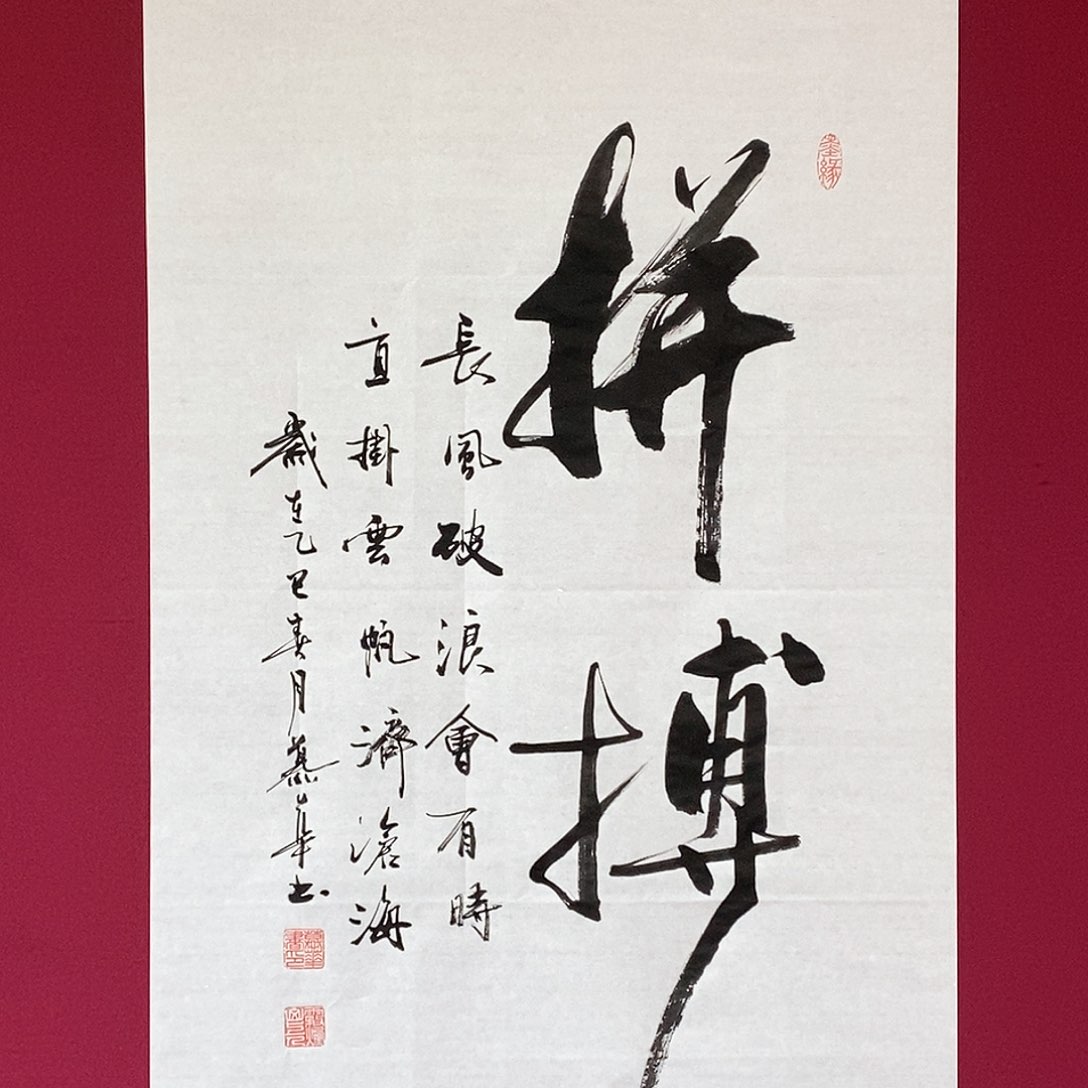 拼搏
長風破浪會有時
直掛雲帆濟滄海
歲在乙巳春月慕華書
墨緣